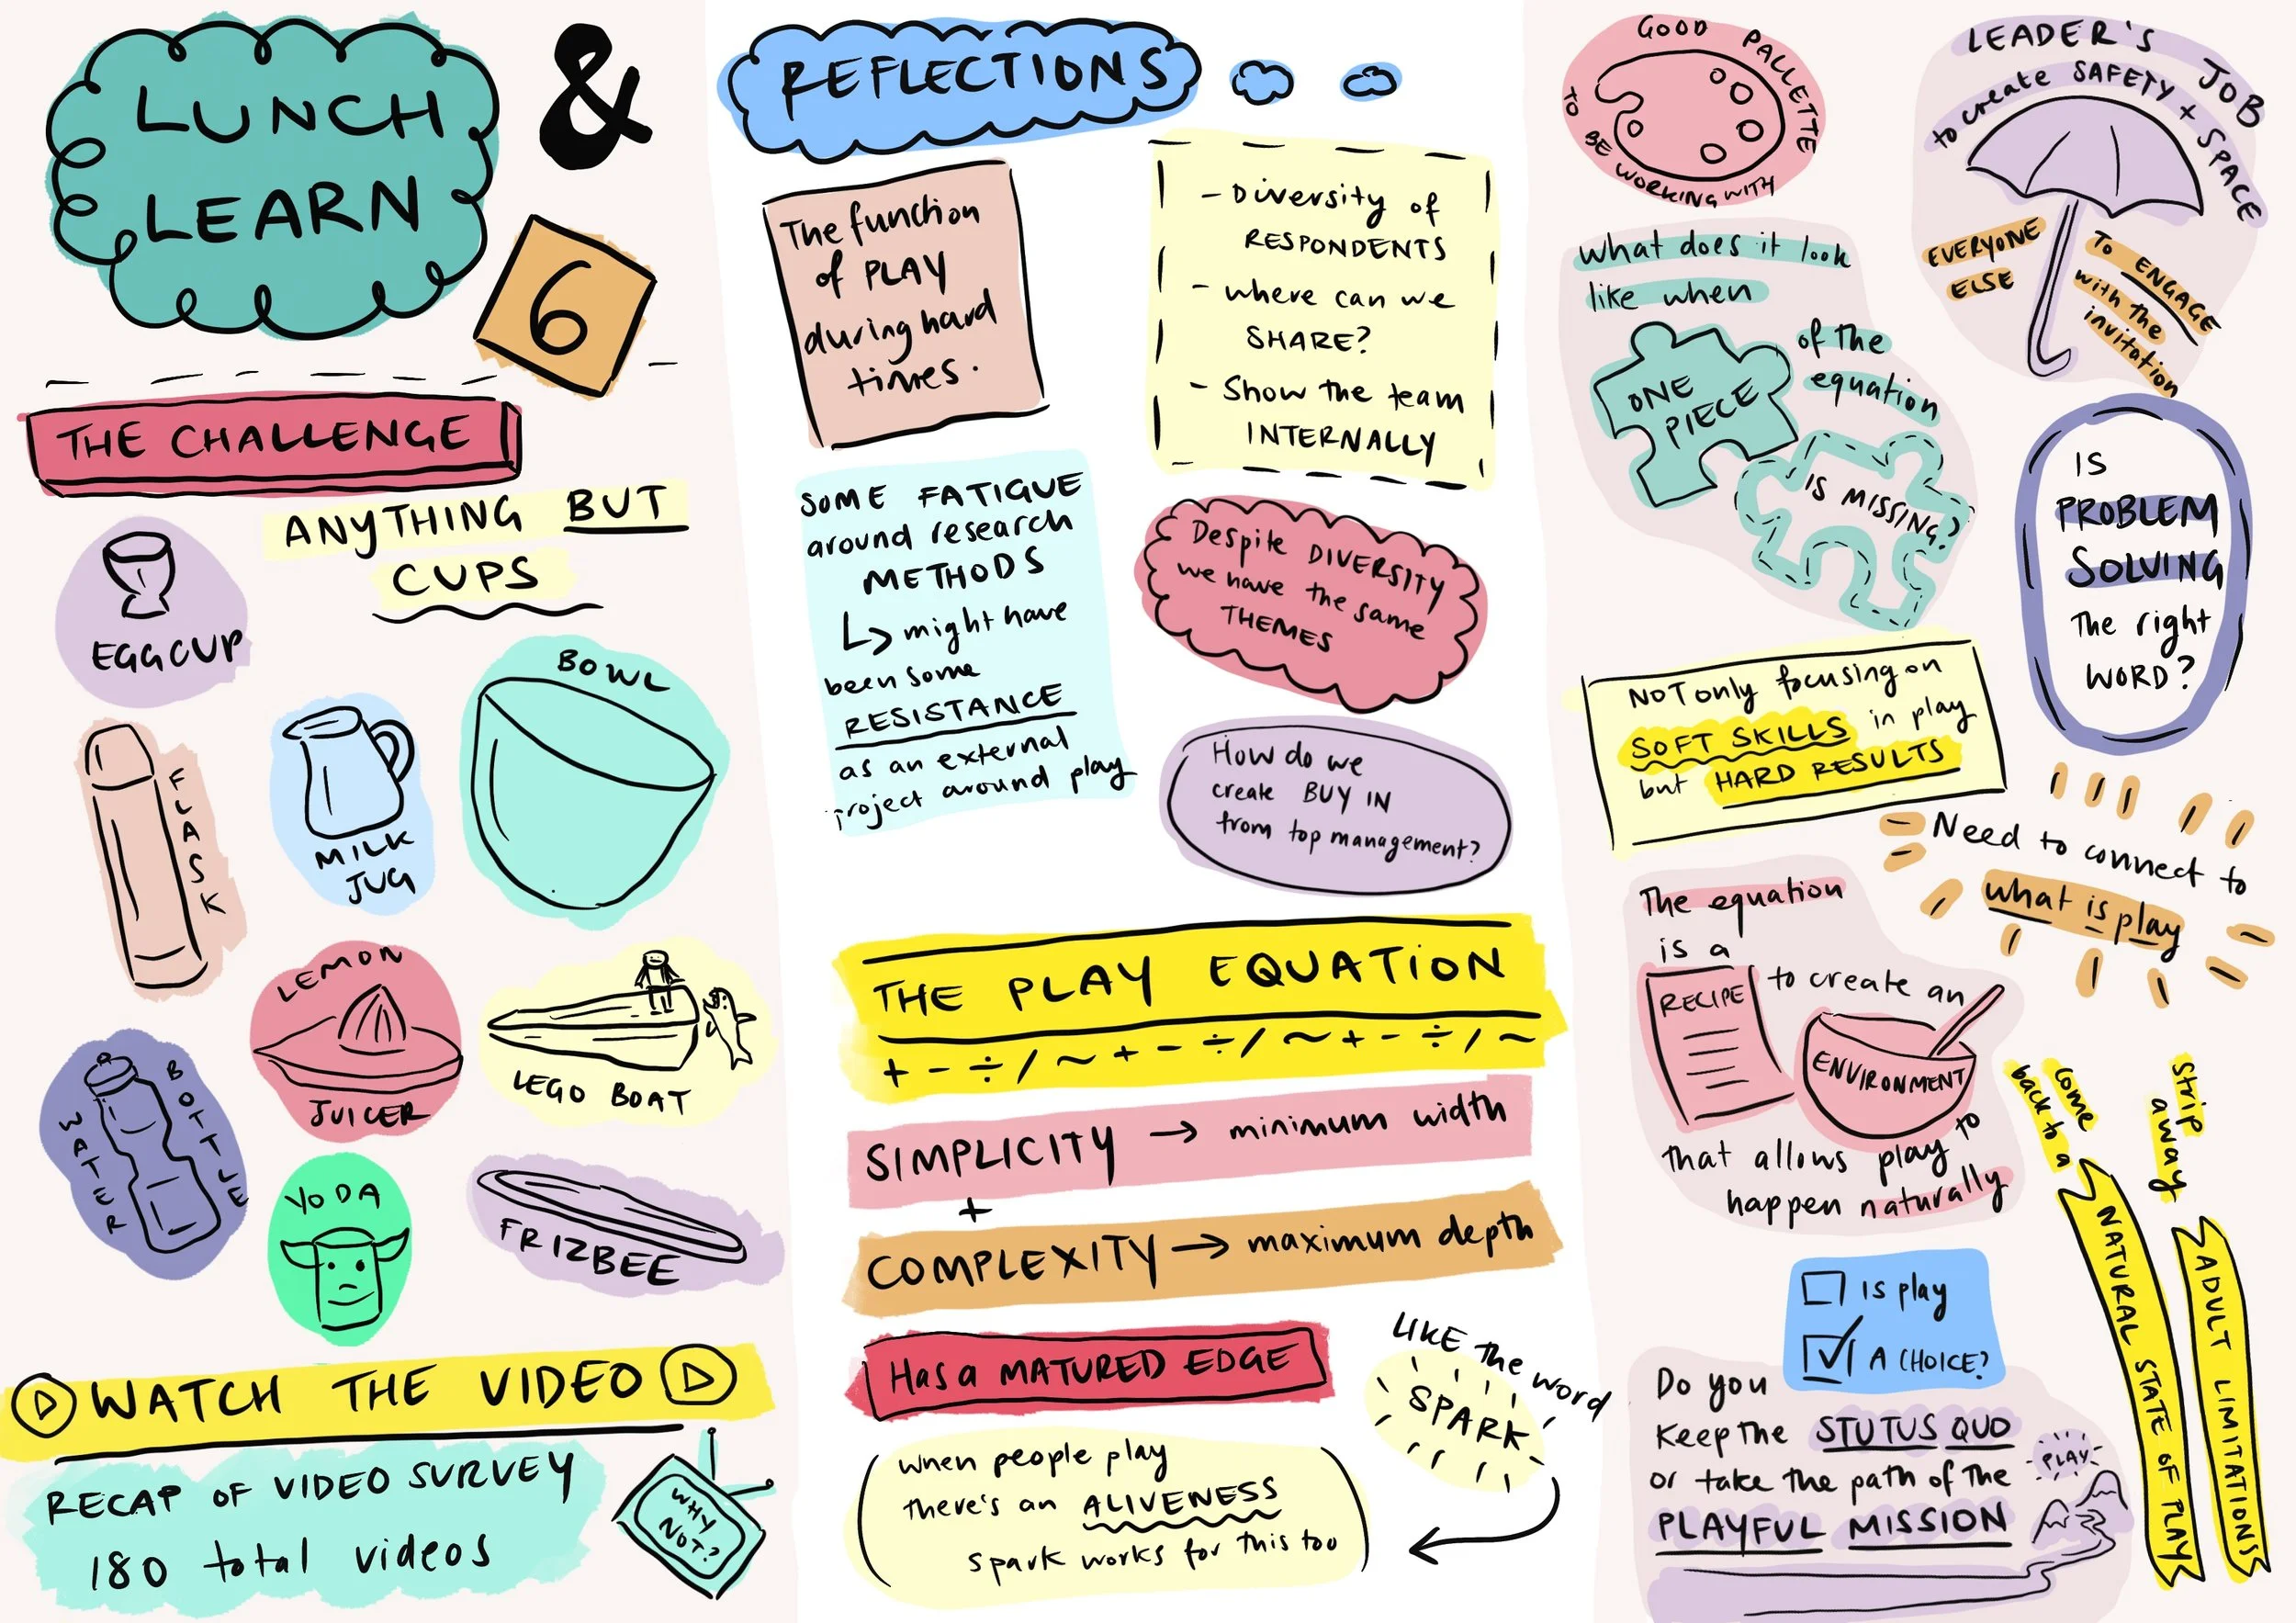 LUNCH
LEARN
&
6
THE CHALLENGE
ANYTHING BUT
CUPS
EGGCUP
BOWL
FLASK
MILK
JUG
LEMON
JUICER
LEGO BOAT
WATER
BOTTLE
YODA
FRIZBEE
WATCH THE VIDEO
RECAP OF VIDEO SURVEY
180 total videos
WHY
NOT?
REFLECTIONS
The function
of PLAY
during hard
times.
- Diversity of
RESPONDENTS
- where can we
SHARE?
- Show the team
INTERNALLY
SOME FATIGUE
around research
METHODS
↳ might have
been some
RESISTANCE
as an external
project around play
Despite DIVERSITY
we have the same
THEMES
How do we
create BUY IN
from top management?
THE PLAY EQUATION
+ - ÷ / ~ + - ÷ / ~ + - ÷ / ~
SIMPLICITY → minimum width
+
COMPLEXITY → maximum depth
Has a MATURED EDGE
LIKE the word
SPARK
(when people play
there's an ALIVENESS
spark works for this too)
GOOD PALLETTE
TO BE WORKING WITH
LEADER'S JOB
to create SAFETY + SPACE
EVERYONE
ELSE
TO ENGAGE
with the
invitation
what does it look
like when
ONE
PIECE
of the
equation
IS MISSING?
IS
PROBLEM
SOLVING
The right
WORD?
NOT only focusing on
SOFT SKILLS in play
but HARD RESULTS
Need to connect to
what is play
The equation
is a
RECIPE
to create an
ENVIRONMENT
that allows play to
happen naturally
come
back to a
NATURAL STATE OF PLAY
strip
away
ADULT LIMITATIONS
is play
A CHOICE?
Do you
Keep the STUTUS QUO
or take the path of the
PLAYFUL MISSION
PLAY